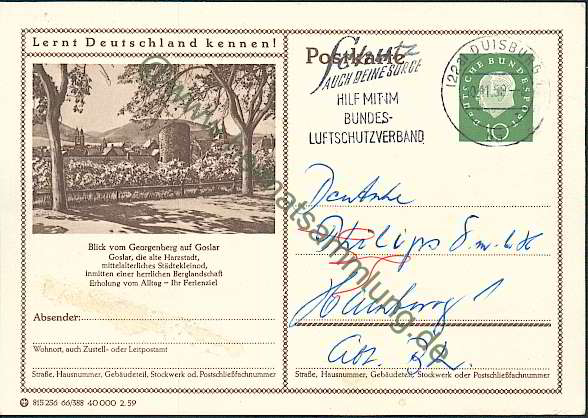 Lernt Deutschland kennen!
Blick vom Georgenberg auf Goslar
Goslar, die alte Harzstadt,
mittelalterliches Städtekleinod,
inmitten einer herrlichen Berglandschaft
Erholung vom Alltag – Ihr Ferienziel
Absender:
Wohnort, auch Zustell- oder Leitpostamt
Straße, Hausnummer, Gebäudeteil, Stockwerk od. Postschließfachnummer
815 236 66/388 40 000 2.59
Postkarte
Schutz
AUCH DEINE SORGE
HILF MIT IM
BUNDES-
LUFTSCHUTZVERBAND
(22a) DUISBURG
DEUTSCHE BUNDESPOST
10
Deutsche
Philips G.m.b.H
Hamburg 1
Straße, Hausnummer, Gebäudeteil, Stockwerk oder Postschließfachnummer